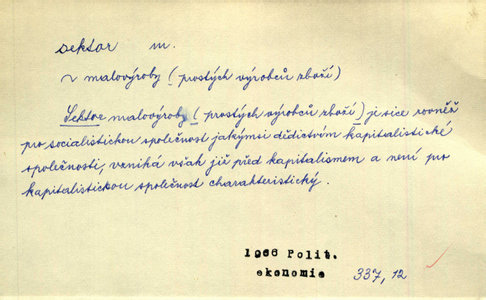 sektor m.
~ malovýroby (prostých výrobců zboží)
Sektor malovýroby (prostých výrobců zboží) je sice rovněž
pro socialistickou společnost jakýmsi dědictvím kapitalistické
společnosti, vzniká však již před kapitalismem a není pro
kapitalistickou společnost charakteristický.
1966 Polit.
ekonomie 337, 12